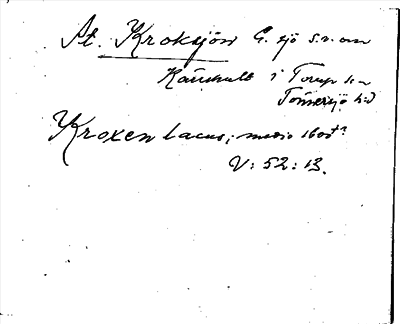 St. Kroksjön G. sjö s.v. om
Kaushult i Torup sn
Tönnersjö hd
Kroxen lacus; medio 1600t?
V: 52: 13.